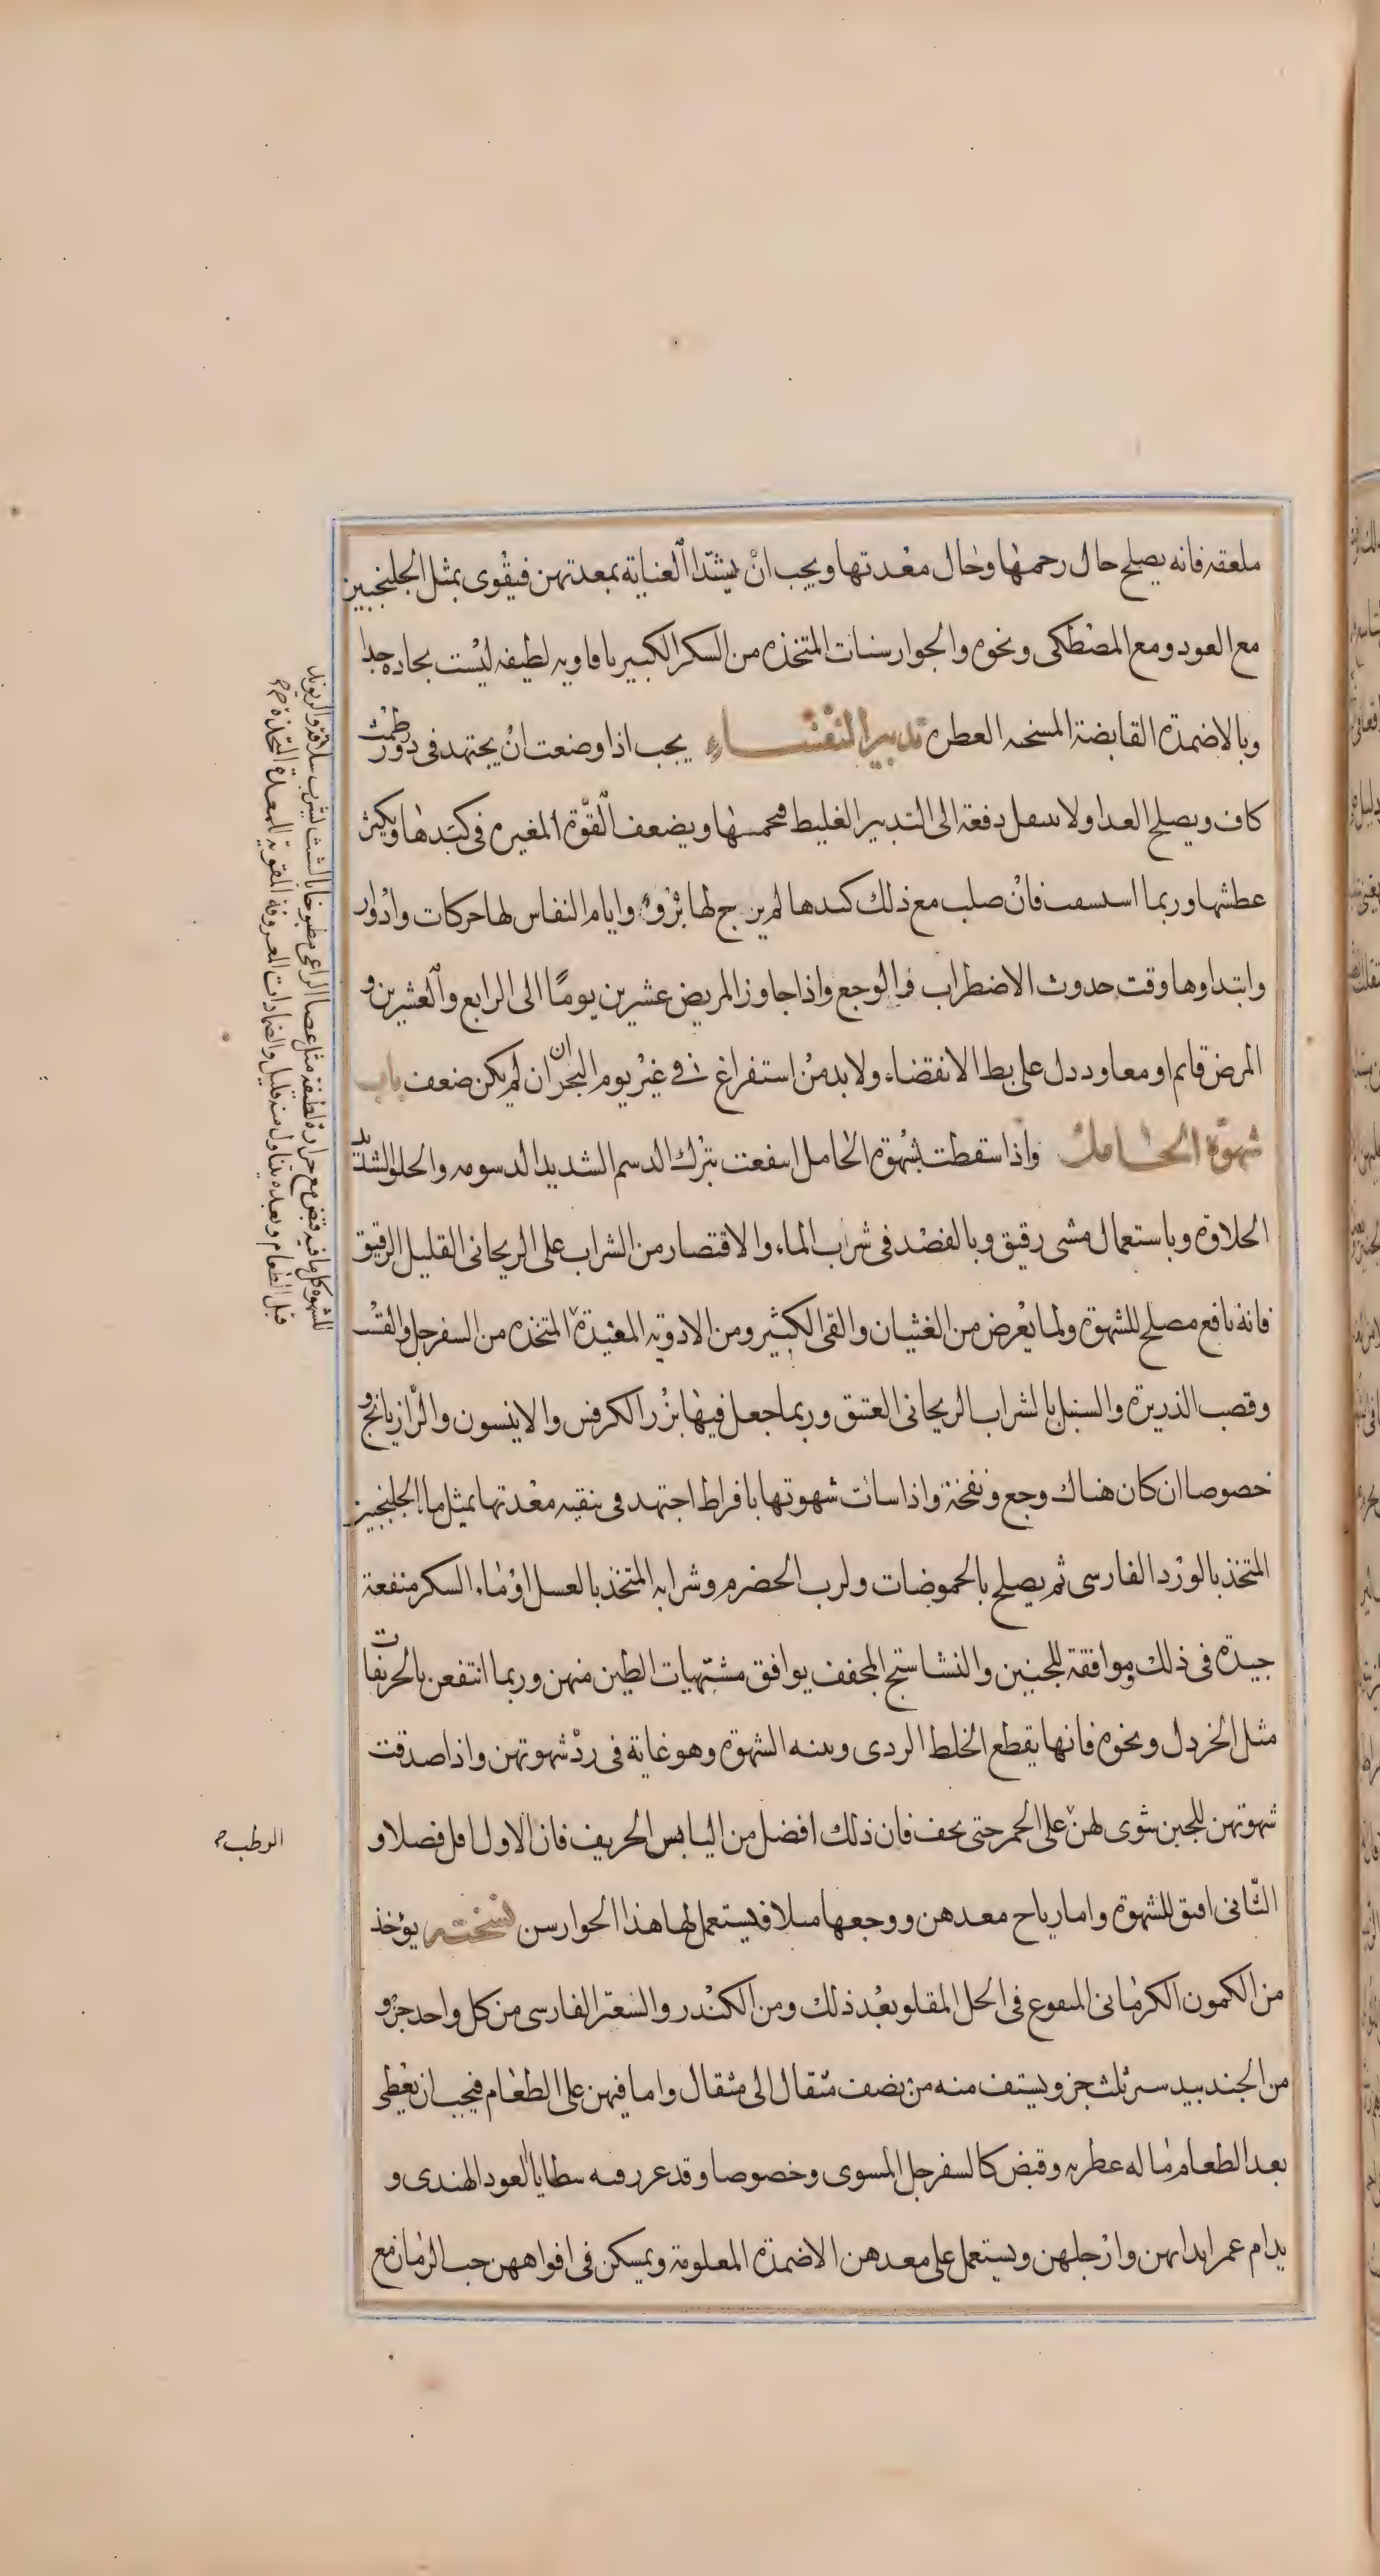 ملعقه فانه يصلح حال رحمها وحال معدتها ويجب ان يشتد العناية بمعدتهن فيقوى بمثل الجلنجبين
مع العود ومع المصطكى ونحوه والجوارسنات المتخذه من السكر الكبير بافاويه لطيفه ليست بحاده جدا
وبالاضمدة القابضة المسخنه العطره تدبير النفساء يجب اذا وضعت ان يجتهد فى درور طمث
كاف ويصلح الغدا ولا ىىىقل دفعة الى التدبير الغليظ فحمىىها ويضعف القوة المغيره فى كبدها ويكثر
عطشها وربما اسىسىقت فان صلب مع ذلك كبدها لم يرج لها برؤ وايام النفاس لها حركات وادوار
وابتداوها وقت حدوث الاضطراب فى الوجع واذا جاوز المريض عشرين يومًا الى الرابع والعشرين و
المرض قايم او معاود دل على بطء الانقضاء ولا بد من استفراغ فى غير يوم البحران ان لم يكن ضعف باب
شهوة الحامل واذا سقطت شهوة الحامل اىىفعت بترك الدسم الشديد الدسومه والحلو الشديد
الحلاوة وباستعمال مشى رقيق وبالقصد فى شراب الماء والاقتصار من الشراب على الريحانى القليل الرقيق
فانه نافع مصلح للشهوة ولما يعرض من الغثيان والقى الكثير ومن الادويه المفيدة المتخذه من السفرجل والقسب
وقصب الذريرة والسنبل بالشراب الريحانى العتىق وربما جعل فيها بزر الكرفس والانيسون والرازيانج و
خصوصا ان كان هناك وجع ونفخة واذا سات شهوتها بافراط اجتهد فى تنقيه معدتها بمثل ما الجلنجبين
المتخذ بالورد الفارسى ثم يصلح بالحموضات ولرب الحضرم وشرابه المتخذ بالعسل او ماء السكر منفعة
جيدة فى ذلك وموافقة للجنين والنشاستج المجفف يوافق مشتهيات الطين منهن وربما انتفعن بالحريفات
مثل الخردل ونحوه فانها يقطع الخلط الردى وىىىه الشهوة وهو غاية فى رد شهوتهن واذا صدقت
شهوتهن للجبن شوى لهن على الجمر حتى يجف فان ذلك افضل من اليابس الحريف فان الاول اقل فضلا و
الثانى افتق للشهوة واما رياح معدهن ووجعها مىلا فيستعمل لها هذا الجوارسن نسخته يؤخذ
من الكمون الكرمانى المىقوع فى الخل المقلو بعد ذلك ومن الكندر والسعتر الفارسى من كل واحد جزو
من الجندبيدستر ثلث جزو يستف منه من نصف مثقال الى مثقال واما فيهن على الطعام فيجب ان يعطى
بعد الطعام ما له عطريه وقبض كالسفرجل المسوى وخصوصا وقد غرر فيه شظايا العود الهندى و
يدام غمر ابدانهن وارجلهن ويستعمل على معدهن الاضمدة المعلومة ويمسكن فى افواههن حب الرمان مع
للشهوه كل ما فيه قبض مع حرارة لطيفة مثل عصا الراعى مطبوخا بالشبث ليشرب سلاقته والريوند
قبل الطعام وبعده يتناول منه قليل والضمادات المعروفة المقوية للمعدة المتخذة
الرطب